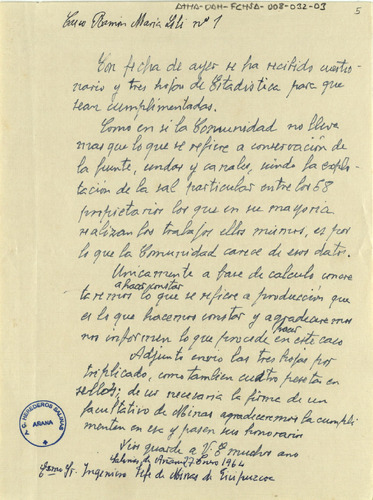 ATHA-DAH-FCHSA-008-032-03
5
Casa Ramón María Lili nº 1
Con fecha de ayer se ha recibido cuestio-
nario y tres hojas de Estadistica para que
sean cumplimentadas.
Como en si la Comunidad no lleva
mas que lo que se refiere a conservación de
la fuente, sendas y canales, siendo la explo-
tación de la sal particular entre los 68
propietarios los que en su mayoria
realizan los trabajos ellos mismos, es por
lo que la Comunidad carece de esos datos.
Unicamente a base de calculo
a hacer constar
lo que se refiere a producción que
es lo que hacemos constar y agradeceremos
nos informen lo que procede hacer en este caso
Adjunto envio las tres hojas por
triplicado, como tambien cuatro pesetas en
sellos; de ser necesaria la firma de un
facultativo de Minas agradeceremos la cumpli-
menten en esa y pasen sus honorarios
Dios guarde a V.E. muchos años
Salinas de Añana 27 Enero 1964
Ilmo Sr. Ingeniero Jefe de Minas de Guipuzcoa
A. C. HEREDEROS SALINAS
AÑANA